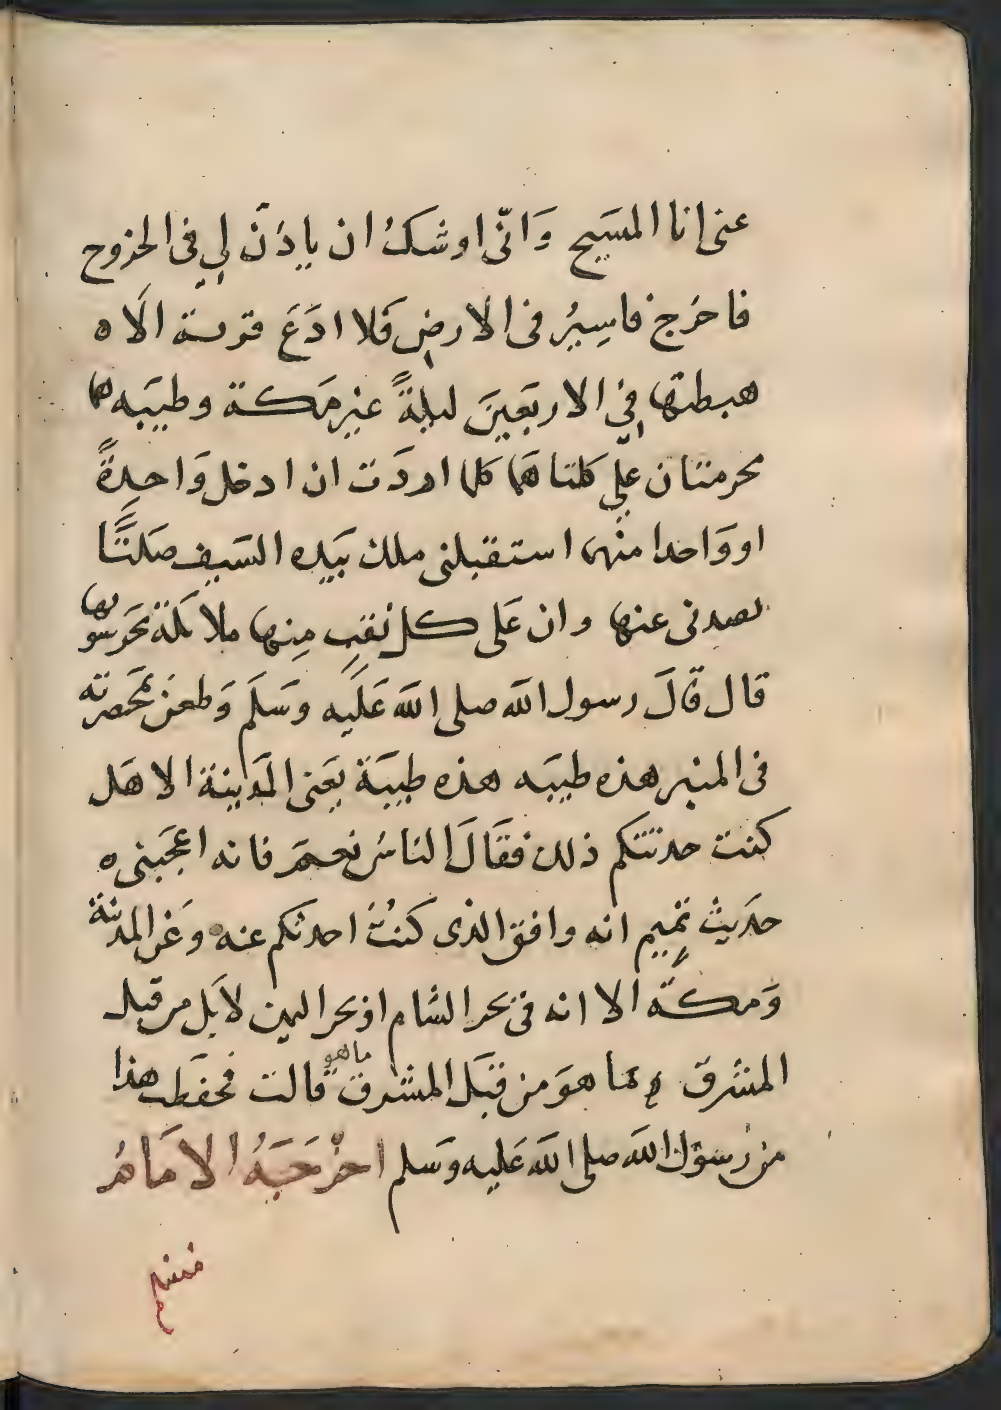 عنى انا المسَيح وَانّى اوشكُ ان ياذنَ لي فى الخروح
فاخرَج فاسِيرُ فى الارضِ فَلا ادَعَ قرية الا ه
هبطتها فِي الاربَعينَ ليلةً غير مَكة وطيبَه هما
محرمتان علي كلتاهما كلما اردَت ان ادخل وَاحِدةً
او وَاحدا منهما استقبلنى ملك بَيده السَيف صَلتًا
يصدنى عنها وان عَلى كل نقبٍ مِنها ملائكة يحَرسُونها
قال قالَ رسول الله صلى الله عَلَيه وَسَلَم وَطعن بمخصرته
فى المنبر هذه طيبَه هذه طيبَة يعَنى المدَينة الا هَل
كنت حدثتكم ذلك فقَالَ الناسُ نعَم فانه اعجبَنى ه
حدَيثُ تميمٍ انه وافق الذى كنتُ احدثكم عنه وَعَن المدينة
وَمكّة الا انه فى بحر الشام او بحر اليمن لا بَل من قبل
المشرق ما هوَ من قبَل المشرق ما هو قالت فحفظت هذا
من رسول الله صلى الله عَليه وسَلم اخرَجَهُ الامَامُ
مسلم